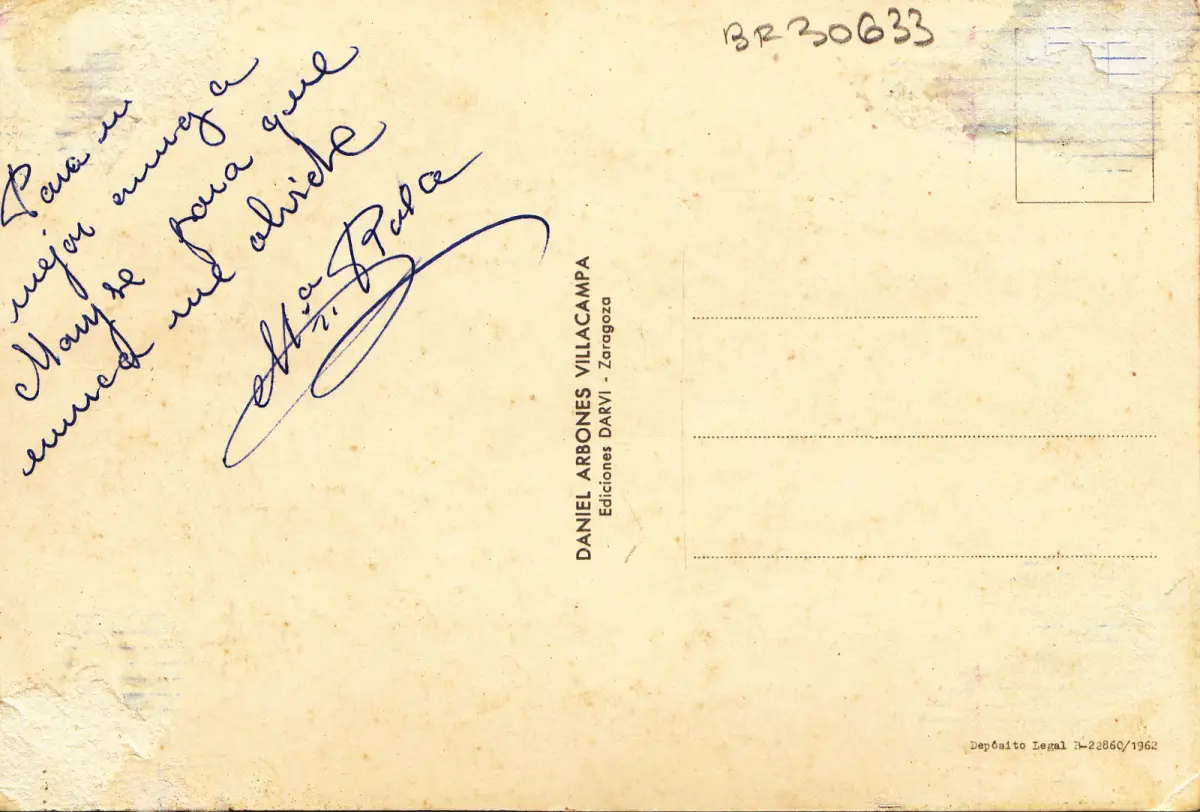 Para mi
mejor amiga
Maryse para que
nunca me olvide
Mª Rosa
BR 30633
DANIEL ARBONES VILLACAMPA
Ediciones DARVI - Zaragoza
Depósito Legal B-22860/1962